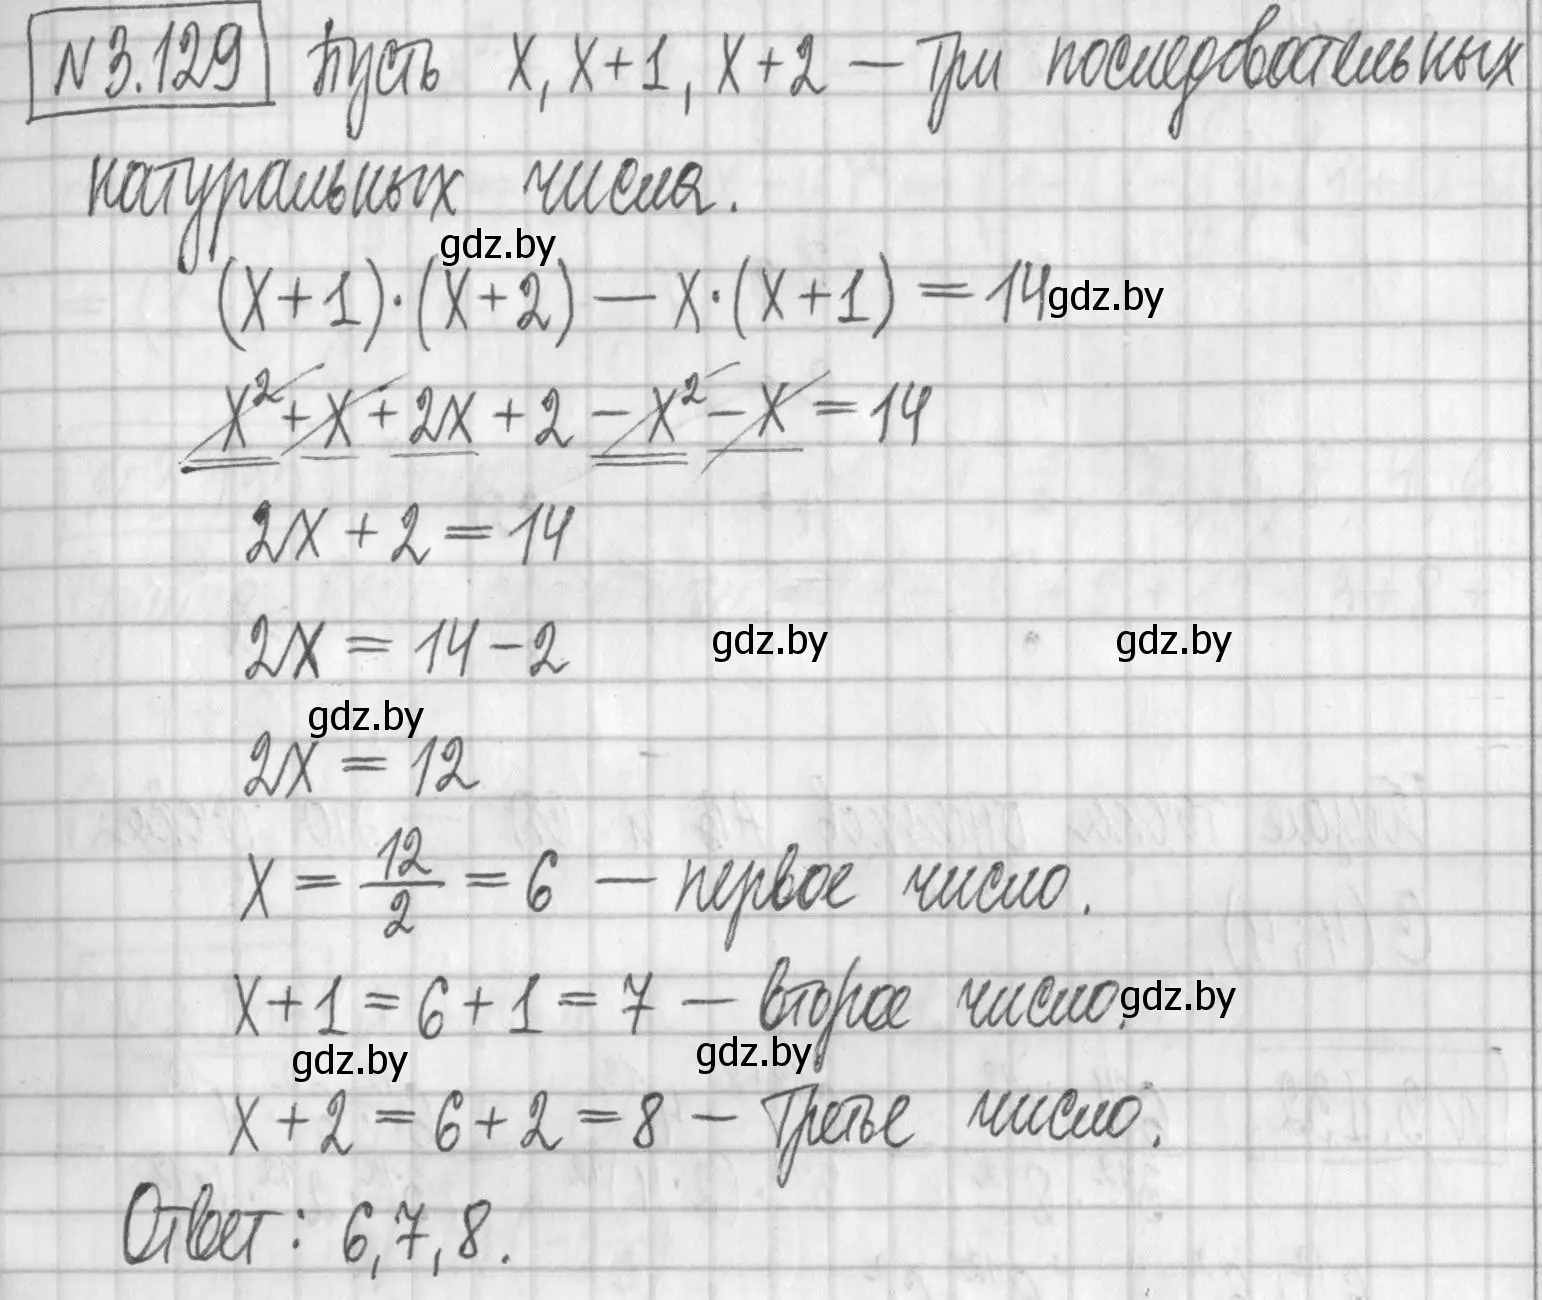 N3.129 Пусть x, x+1, x+2 — три последовательных
натуральных числа.
gdz.by
(x+1)·(x+2) — x·(x+1) = 14
gdz.by
x²+x+2x+2-x²-x=14
2x+2=14
2x=14-2
gdz.by
gdz.by
gdz.by
2x=12
x=12/2=6 — первое число.
x+1=6+1=7 — второе число.
gdz.by
gdz.by
gdz.by
x+2=6+2=8 — третье число.
Ответ: 6,7,8.